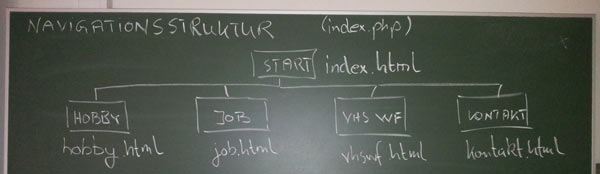 NAVIGATIONSSTRUKTUR (index.php)
START index.html
HOBBY JOB VHS WF KONTAKT
hobby.html job.html vhswf.html kontakt.html